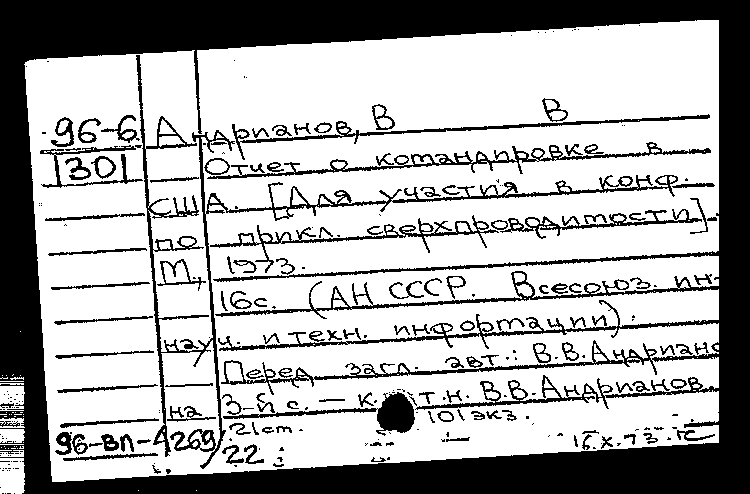 96-6 Андрианов, В В
1301 Отчет о командировке в
США. [Для участия в конф.
по прикл. сверхпроводимости]
М., 1973.
16с. (АН СССР. Всесоюз. ин-
науч. и техн. информации).
Перед загл. авт.: В.В.Андриано
на 3-й с. – к. т.н. В.В.Андрианов.
21см. 101 экз.
96-ВП-4269/22 16.X.73.